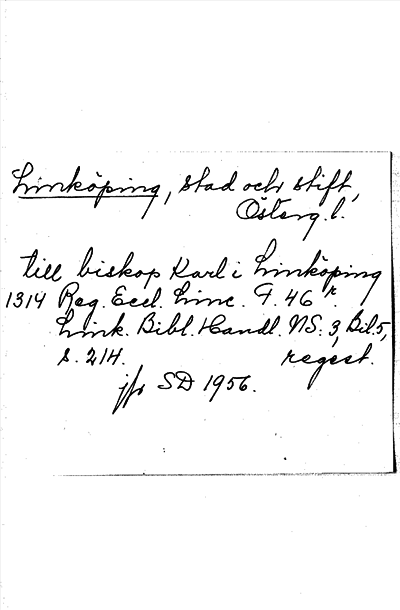 Linköping, stad och stift,
Österg. l.
till biskop Karl i Linköping
1314 Reg. Eccl. Linc. F. 46 r.
Link. Bibl. Handl. NS. 3, Bil. 5,
s. 214. regest.
jfr SD 1956.